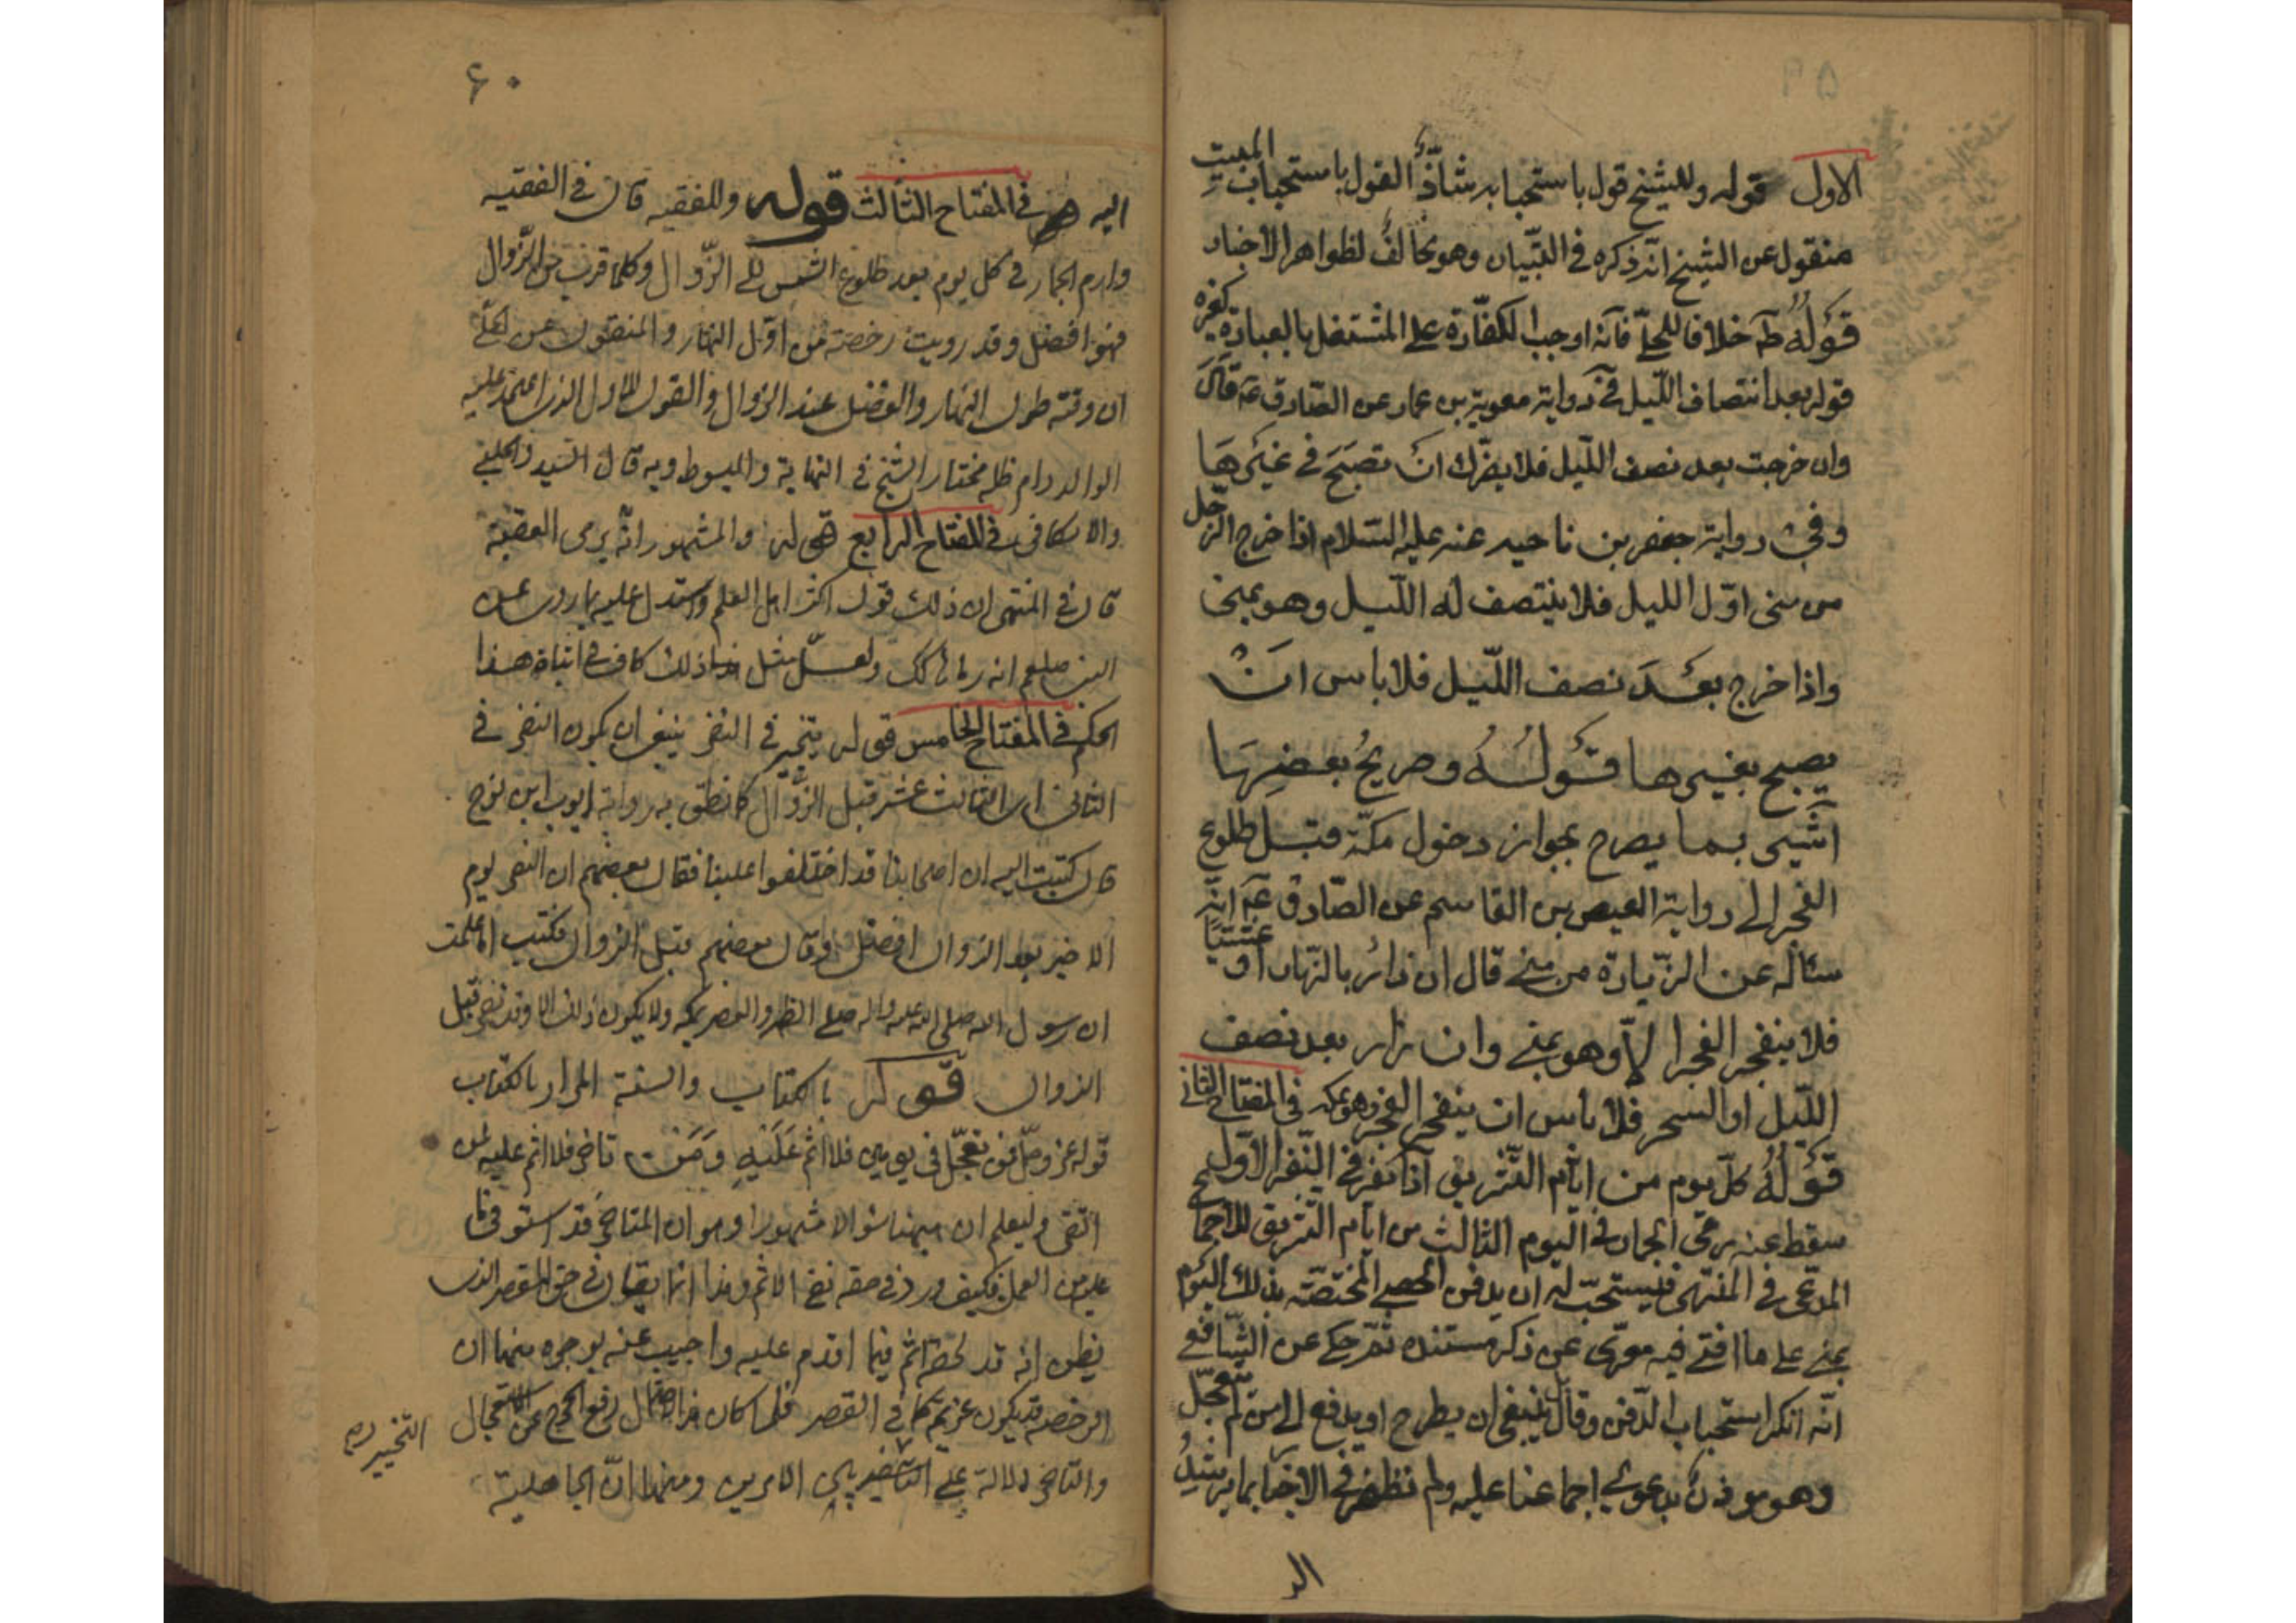 ۵۹
الاول قوله وللشيخ قول باستحبابه شاذّ القول باستحباب المبيت
منقول عن الشيخ انّه ذكره في التبّيان وهو مخالف لظواهر الاخبار
قوله طٓ خلافا للحلّي فانّه اوجب الكفّارة على المشتغل بالعبادة كغيره
قوله بعد انتصاف اللّيل في رواية معوية بن عمار عن الصّادق عٓ قال
وان خرجت بعد نصف اللّيل فلا يضّرك ان تصبح في غيرها
وفي رواية جعفر بن ناحيه عنه عليه السّلام اذا خرج الرّجل
من منى اوّل الليل فلا ينتصف له اللّيل وهو بمنى
واذا خرج بعد نصف اللّيل فلا باس ان
يصبح بغيرها قوله وصريح بعضها
اشير بما يصرح بجواز دخول مكّة قبل طلوع
الفجر الى رواية العيص بن القاسم عن الصّادق عٓ انّه
سئاله عن الزّيارة من منى قال ان زار بالنّهار او عشيّا
فلا ينفجر الفجر الّا وهو بمنى وان زار بعد نصف
اللّيل او السحر فلا باس ان ينفجر الفجر وهو بمكه في المفتاح الثاني
قوله كلّ يوم من ايّام التّشريق اذا نفر في النّفر الاوّل
سقط عنه رمى الجمار في اليوم الثالث من ايّام التّشريق للاجماع
المدّعى في المنتهى فيستحبّ له ان يدفن الحصى المختصّه بذلك اليوم
بمنى على ما افتى فيه معرّى عن ذكر مستنده ثمّ حكى عن الشّافعي
انّه انكر استحباب الدّفن وقال ينبغى ان يطرح او يدفع الى من لم يتعجّل
وهو موذن بدعوى اجماعنا عليه ولم نظفر في الاخبار بما يرشد
اليه
۶۰
اليه في المفتاح الثالث قوله وللفقيه قال في الفقيه
وارم الجمار في كل يوم بعد طلوع الشمس الى الزّوال وكلما قرب من الزّوال
فهو افضل وقد رويت رخصة من اوّل النهار والمنقول عن الحلّي
ان وقته طول النهار والفضل عند الزوال والقول الاول الذى اعتمد عليه
الوالد دام ظله مختار الشيخ في النهاية والمبسوط وبه قال السيد والحلبي
والاسكافى في المفتاح الرابع قوله والمشهور انّه يرمى العقبة
قال في المنتهى ان ذلك قول اكثر اهل العلم واستدل عليه بما روى عن
النبى صلعم انه رماها كك ولعلّ مثل ذلك كاف في اثبات هذا
الحكم في المفتاح الخامس قوله يتخير في النفر ينبغى ان يكون النفر في
الثانى اى الثالث عشر قبل الزّوال كما نطق به رواية ايوب ابن نوح
قال كتبت اليه ان اصحابنا قد اختلفوا علينا فقال بعضهم ان النفر يوم
الاخير بعد الزوال افضل وقال بعضهم قبل الزوال فكتب اما علمت
ان رسول الله صلى الله عليه واله صلى الظهر والعصر بمكه ولا يكون ذلك الا وقد نفر قبل
الزوال قوله بالكتاب والسنة المراد بالكتاب
قوله عز وجلّ فمن تعجّل في يومين فلا اثم عليه ومن تاخر فلا اثم عليه لمن
اتقى وليعلم ان ههنا سئوالا مشهورا وهو ان المتاخر قد استوفى ما
عليه من العمل فكيف ورد في حقه نفى الاثم وهذا انما يقال في حق المقصر الذى
يظن انه قد لحقه اثم فيما اقدم عليه واجيب عنه بوجوه منها ان
الرخصه قد يكون عزيمة كما في القصر فلما كان هذا احتمال رفع الحرج عن الاستعجال
والتاخر دلالة على التخيير بين الامرين ومنها انّ الجاهلية
التخيير